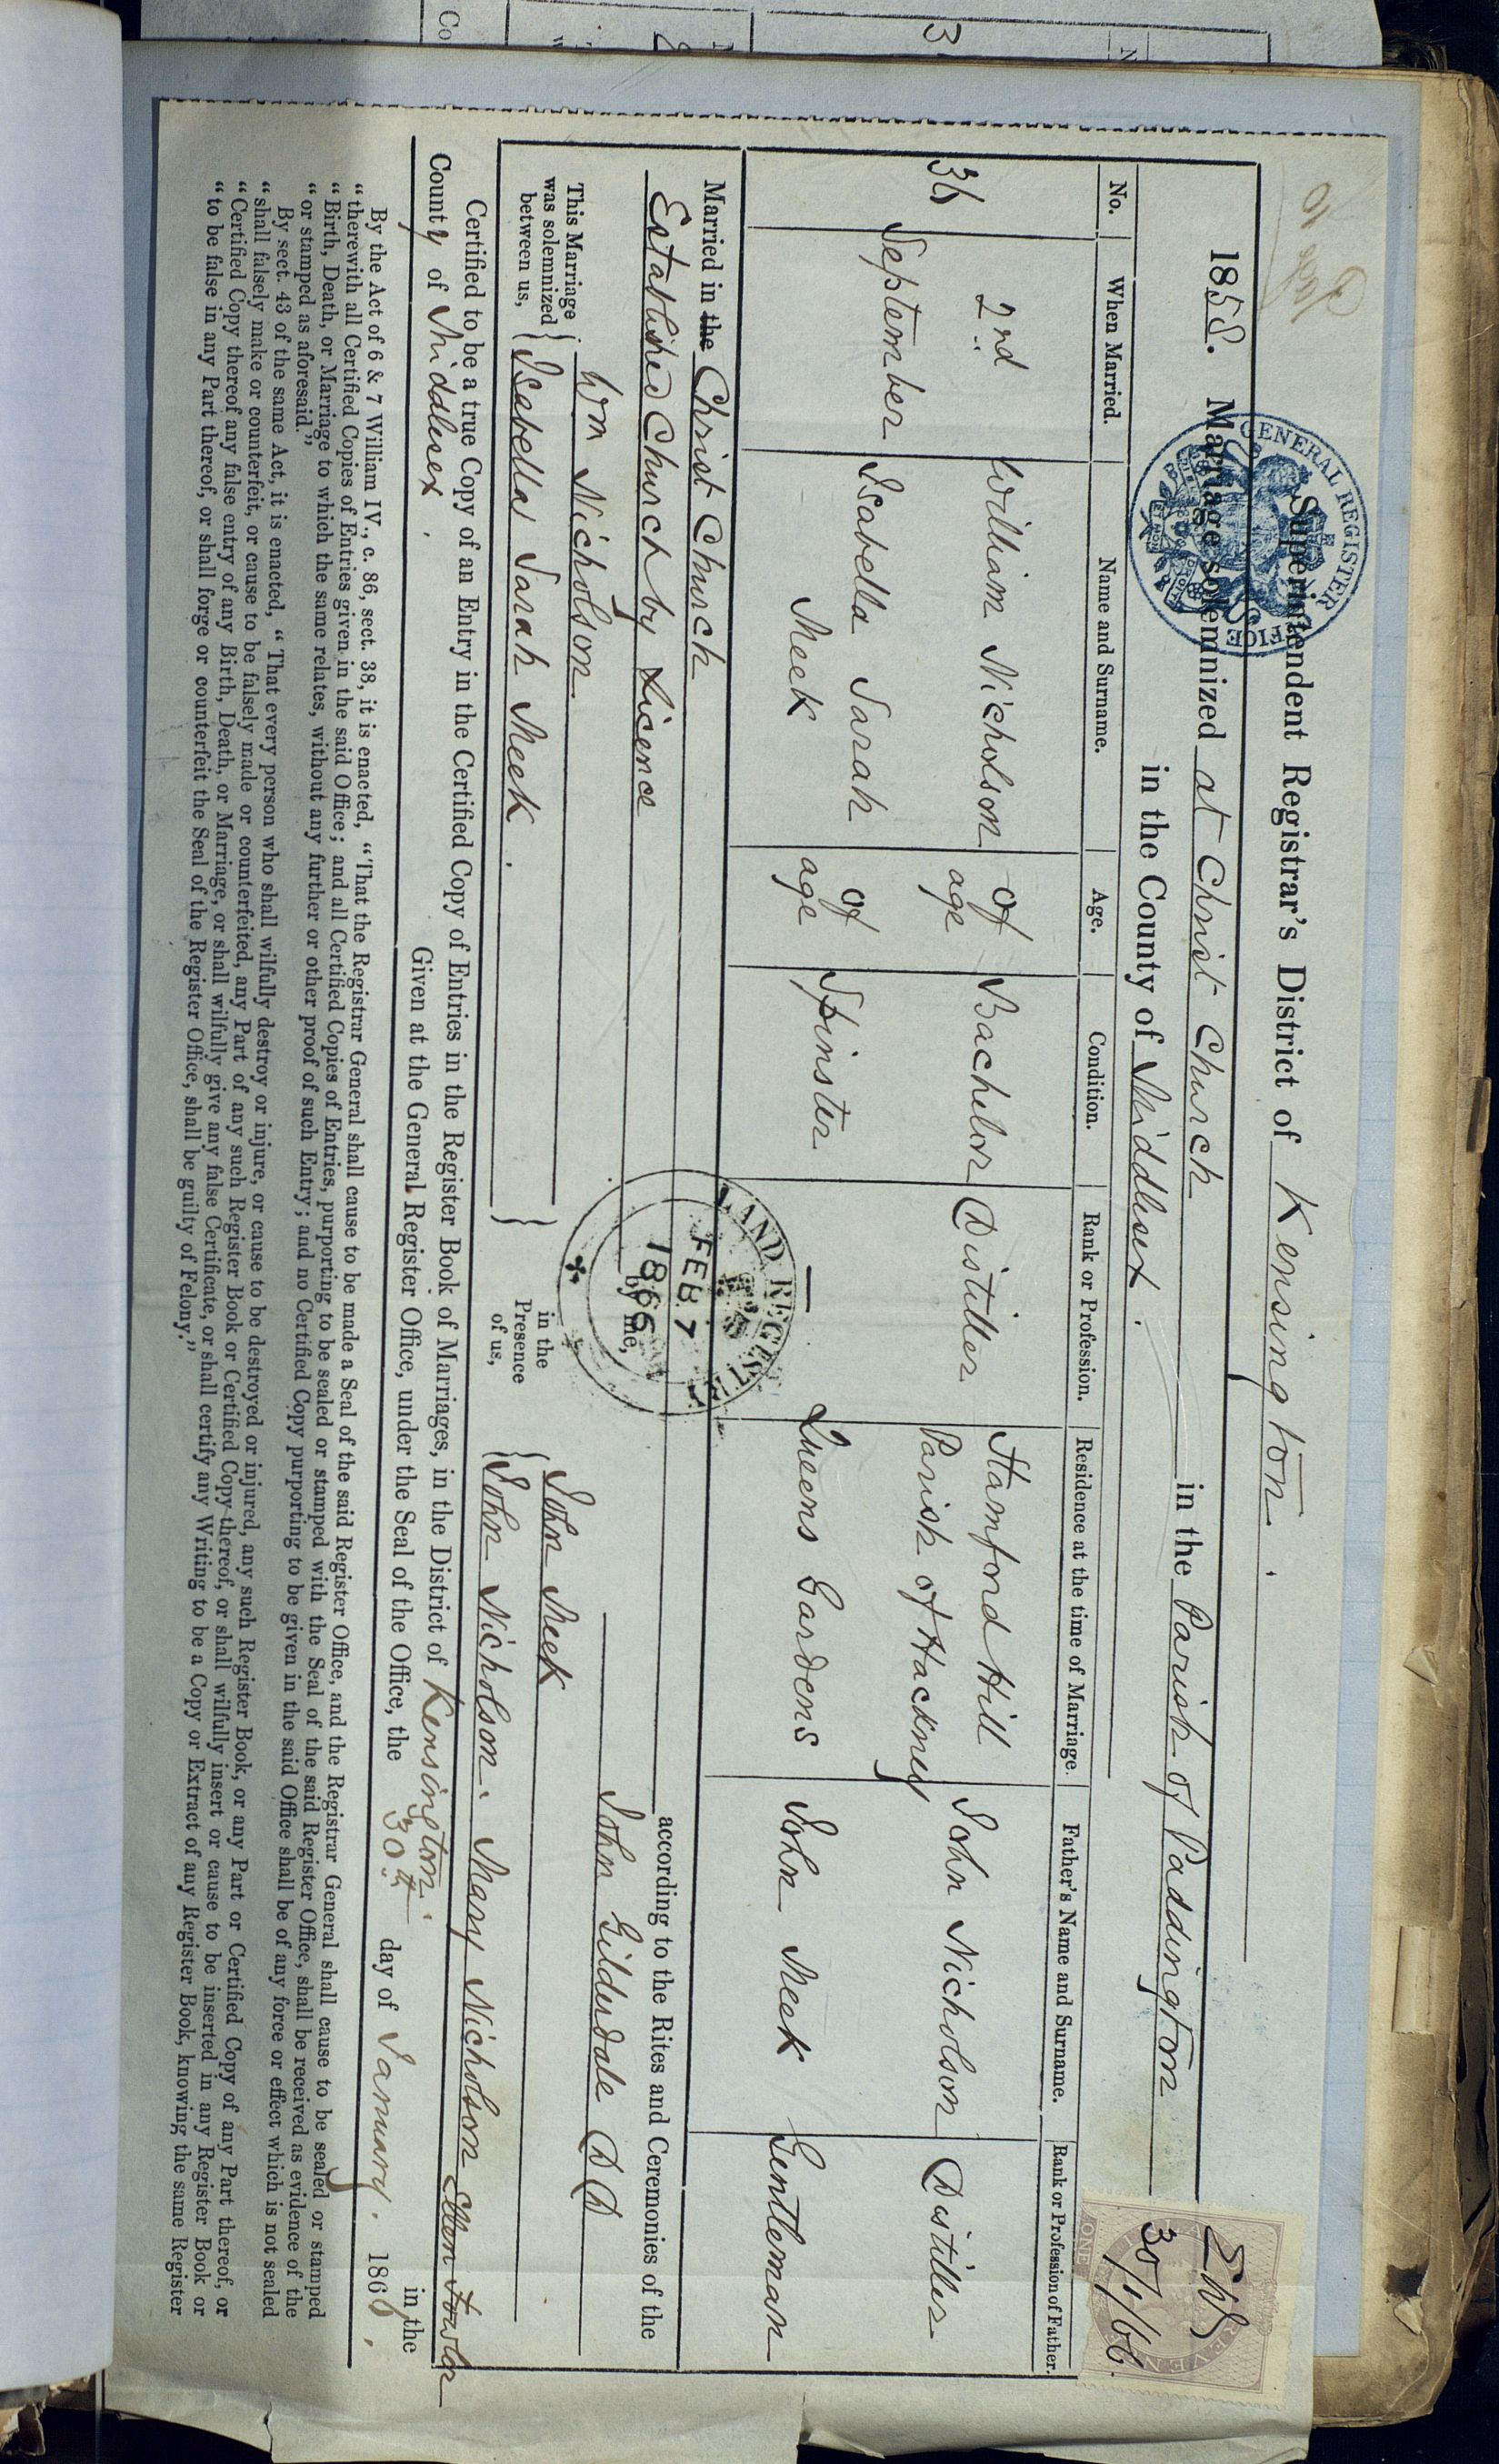 Page 10
Superintendent Registrar's District of Kensington.
1858. Marriage solemnized at Christ Church in the Parish of Paddington
in the County of Middlesex.
GENERAL REGISTER OFFICE
REVENUE
ONE
30/1/66.
No. When Married. Name and Surname. Age. Condition. Rank or Profession. Residence at the time of Marriage. Father's Name and Surname. Rank or Profession of Father.
36 2nd September William Nicholson of age Bachelor Distiller Stamford Hill Parish of Hackney John Nicholson Distiller
Isabella Sarah Meek of age Spinster — Queens Gardens John Meek Gentleman
Married in the Christ Church
Established Church by Licence according to the Rites and Ceremonies of the
by me, John Gilderdale DD
LAND REGISTRY
FEB 7
1866
This Marriage was solemnized between us, Wm Nicholson. in the Presence of us, John Meek
Isabella Sarah Meek. John Nicholson. Mary Nicholson Ellen Fowler
Certified to be a true Copy of an Entry in the Certified Copy of Entries in the Register Book of Marriages, in the District of Kensington. in the
County of Middlesex. Given at the General Register Office, under the Seal of the Office, the 30th day of January. 1866,
By the Act of 6 & 7 William IV., c. 86, sect. 38, it is enacted, "That the Registrar General shall cause to be made a Seal of the said Register Office, and the Registrar General shall cause to be sealed or stamped
"therewith all Certified Copies of Entries given in the said Office; and all Certified Copies of Entries, purporting to be sealed or stamped with the Seal of the said Register Office, shall be received as evidence of the
"Birth, Death, or Marriage to which the same relates, without any further or other proof of such Entry; and no Certified Copy purporting to be given in the said Office shall be of any force or effect which is not sealed
"or stamped as aforesaid."
By sect. 43 of the same Act, it is enacted, "That every person who shall wilfully destroy or injure, or cause to be destroyed or injured, any such Register Book, or any Part or Certified Copy of any Part thereof, or
"shall falsely make or counterfeit, or cause to be falsely made or counterfeited, any Part of any such Register Book or Certified Copy thereof, or shall wilfully insert or cause to be inserted in any Register Book or
"Certified Copy thereof any false entry of any Birth, Death, or Marriage, or shall wilfully give any false Certificate, or shall certify any Writing to be a Copy or Extract of any Register Book, knowing the same Register
"to be false in any Part thereof, or shall forge or counterfeit the Seal of the Register Office, shall be guilty of Felony."